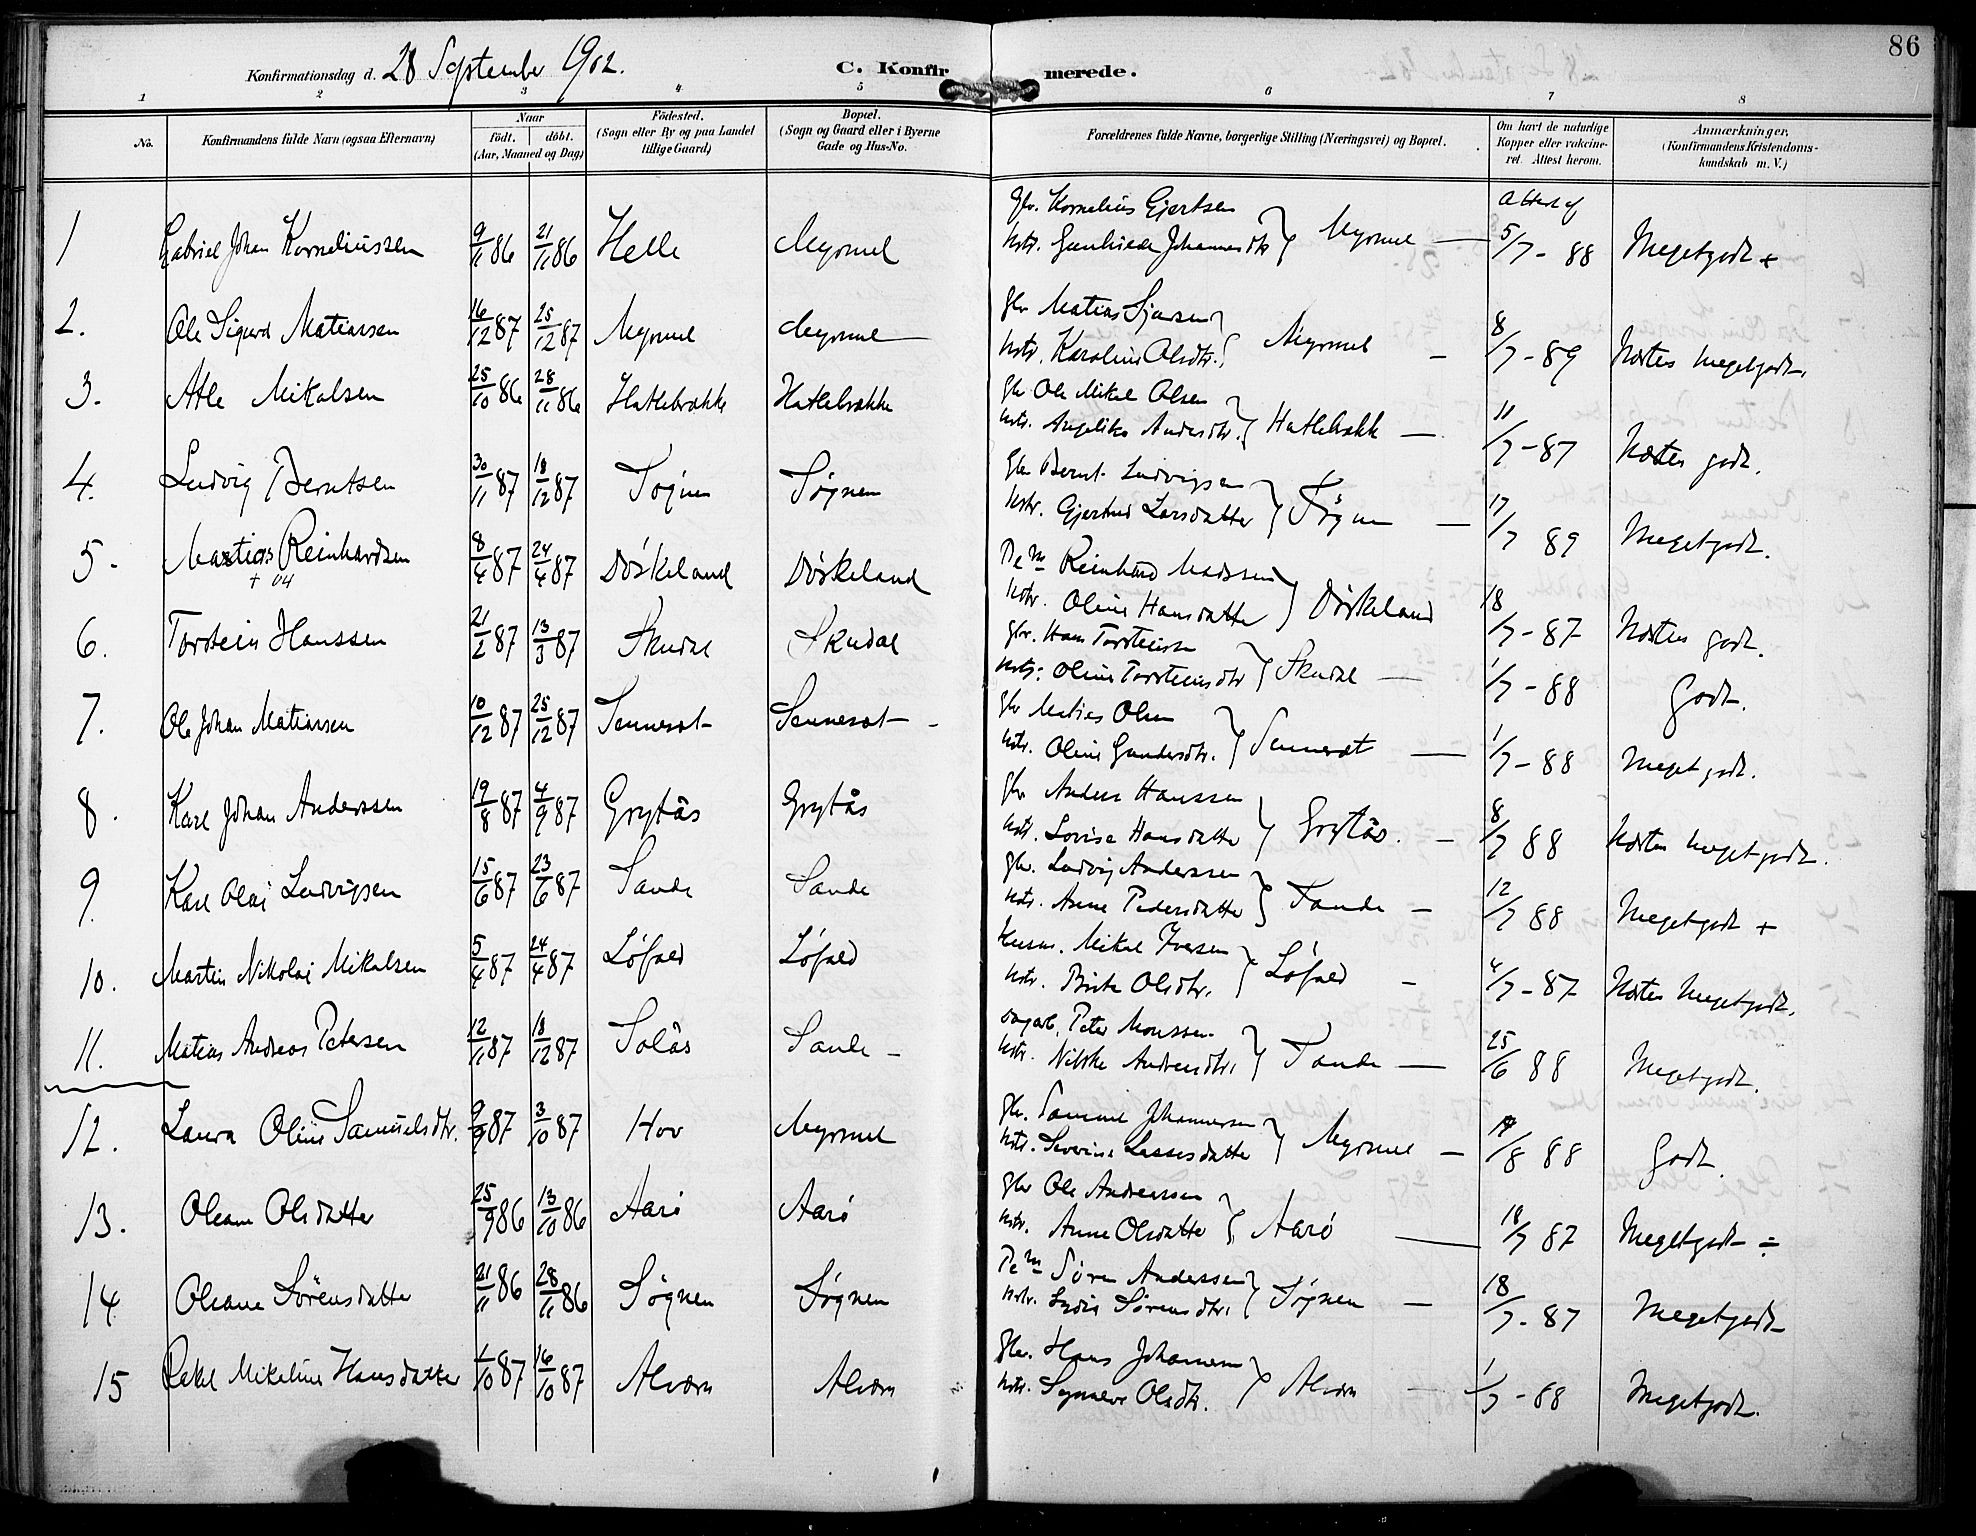 86
Konfirmationsdag d. 28 September 1902. C. Konfirmerede.
1 2 3 4 5 6 7 8
No. Konfirmandens fulde Navn (ogsaa Efternavn) Naar født. døbt. (Aar, Maaned og Dag) Fødested. (Sogn eller By og paa Landet tillige Gaard) Bopæl. (Sogn og Gaard eller i Byerne Gade og Hus-No. Forældrenes fulde Navne, borgerlige Stilling (Næringsvei) og Bopæl. Om havt de naturlige Kopper eller vakcineret. Attest herom. Anmærkninger. (Konfirmandens Kristendomskundskab m. V.)
1 Gabriel Johan Korneliussen 9/11 86 21/11 86 Helle Myrmel Gbr. Kornelius Gjertsen
Hstr. Johannesdtr } Myrmel — Attest af 5/7 - 88 Megetgodt +
2. Ole Sigurd Matiassen 16/12 87 25/12 87 Myrmel Myrmel Gbr Matias
Hstr. Karoline Olsdtr. } Myrmel — 8/7 - 89 Næsten Megetgodt.
3. Atle Mikalsen 25/10 86 28/11 86 Hatlebrække Hatlebrække Gbr Ole Mikal Olsen
Hstr. Angelika Andersdtr. } Hatlebrekk — 11/7 - 87 Næsten godt.
4. Ludvig Berntsen 30/11 87 18/12 87 Søgnen Søgnen Gbr Bernt Ludvigsen
Hstr. Gjertrud Larsdatter } Søgnen — 17/7 89 Megetgodt.
5. Matias Reinhardsen 8/4 87 24/4 87 Døskeland Døskeland Pe m Reinhard Madssen
+ 04 Hstr. Oline Hansdatter } Døskeland 18/7 - 87 Næsten godt.
6. Torstein Hanssen 21/2 87 13/3 87 Skudal Skudal Gbr. Hans Torsteinsen
Hstr: Oline Torsteinsdtr } Skudal — 1/7 - 88 Godt.
7. Ole Johan Matiassen 10/12 87 25/12 87 Sunneset Sunneset - Gbr Matias Olsen
Hstr. Oline Gundersdtr. } Sunneset — 1/7 - 88 Megetgodt.
8. Karl Johan Anderssen 19/8 87 4/9 87 Grytås Grytås Gbr Anders Hanssen
Hstr. Lovise Hansdatter } Grytås. — 8/7 88 Næsten Megetgodt.
9. Karl Olai Ludvigsen 15/6 87 23/6 87 Sande Sande Gbr. Ludvig Anderssen
Hstr. Anne Pedersdatter } Sande — 12/7 88 Megetgodt +
10. Martin Nikolai Mikalsen 5/4 87 24/4 87 Løfald Løfald Husm. Mikal Iversen
Hstr. Brite Olsdtr. } Løfald — 4/7 - 87 Næsten Megetgodt.
11. Matias Andreas Petersen 12/11 87 18/12 87 Solås Sande - Dagarb. Peter Monssen
Hstr. Andreasdtr. } Sande — 25/6 88 Megetgodt.
12. Laura Oline Samuelsdtr. 9/9 87 3/10 87 Hov Myrmel Gbr. Samuel Johannessen
Hstr. Severine Lassesdatter } Myrmel — /8 88 Godt.
13. Oleane Olsdatter 25/9 86 13/10 86 Aarø Aarø Gbr Ole Andreassen
Hstr. Anne Olsdatter } Aarø — 18/7 87 Megetgodt ÷
14. Oleane Sørensdatter 21/11 86 28/11 86 Søgnen Søgnen Pe m Søren Anderssen
Hstr. Lydia Sørensdtr. } Søgnen — 18/7 - 87 Megetgodt
15 Rakel Mikeline Hansdatter 1/10 87 16/10 87 Alværn Alværn Gbr. Hans Johannesen
Hstr. Synneve Olsdtr. } Alværn — 1/7 - 88 Megetgodt.